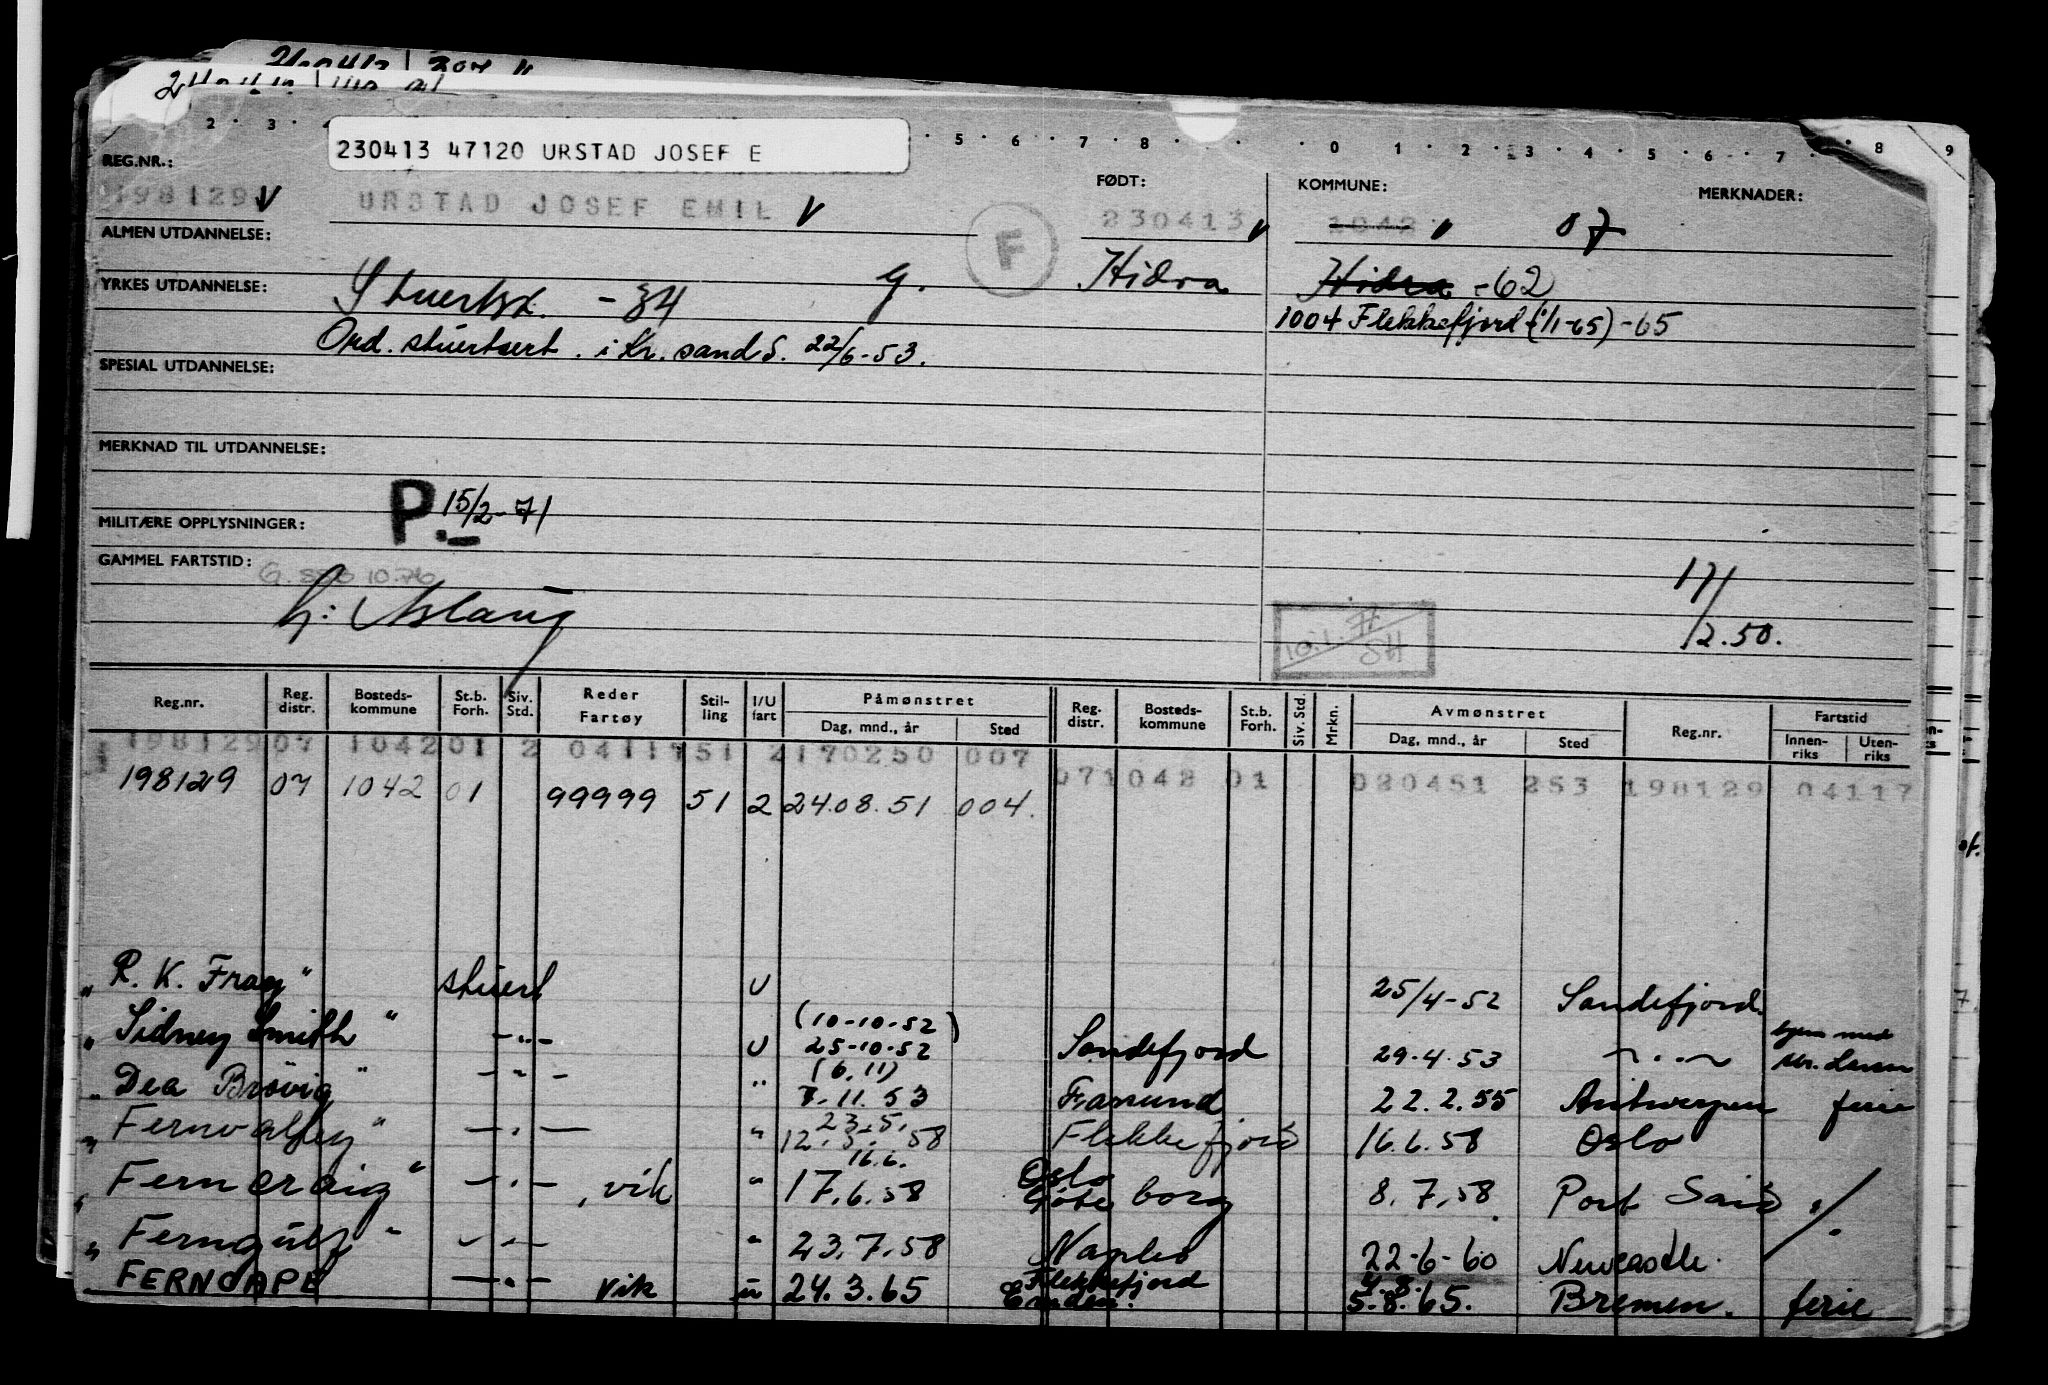 2 · 3 · 5 · 6 · 7 · 8 · 0 · 1 · 2 · 3 · 4 · 5 · 6 · 7 · 8 9
230413 47120 URSTAD JOSEF E
REG.NR.: FØDT: KOMMUNE: MERKNADER:
198129 V URSTAD JOSEF EMIL V F 230413 V 1042 V 07
ALMEN UTDANNELSE:
Hidra Hidra -62
YRKES UTDANNELSE: Stuertsk. -34 G.
1004 Flekkefjord (1/1-65) -65
Ord. stuertsert. i Kr.sand S. 22/6-53.
SPESIAL UTDANNELSE:
MERKNAD TIL UTDANNELSE:
P. 15/2-71
MILITÆRE OPPLYSNINGER:
GAMMEL FARTSTID:
h: Aslaug
10.1. 77 SH
17/
12.50.
Reg.nr. Reg. distr. Bosteds- kommune St.b. Forh. Siv. Std. Reder Fartøy Stil- ling I/U fart Påmønstret Dag, mnd., år Sted Reg. distr. Bosteds- kommune St.b. Forh. Siv. Std. Mrkn. Avmønstret Dag, mnd., år Sted Reg.nr. Fartstid Innen- riks Uten- riks
198129 07 1042 01 2 04117 51 2 170250 007 07 1042 01 020451 253 198129 04117
198129 07 1042 01 99999 51 2 24.08.51 004.
" R. K. Fray " stuert U 25/4-52 Sandefjord.
" Sidney Smith " -"- U (10-10-52) 25-10-52 Sandefjord 29.4.53 -"- hjem med
" Dea Brøvig " -"- " (6.11) 7.11.53 Farsund 22.2.55 Antwerpen ferie
" Fernvalley " -"- " 23.5. 12.5.58 Flekkefjord 16.6.58 Oslo
" Ferncraig " -"- , vik " 16.6. 17.6.58 Oslo Göteborg 8.7.58 Port Said
" Ferngulf " -"- " 23.7.58 Naples 22-6-60 Newcastle.
" FERNCAPE -"- vik u 24.3.65 Flekkefjord Emden. 4.8. 5.8.65. Bremen. ferie